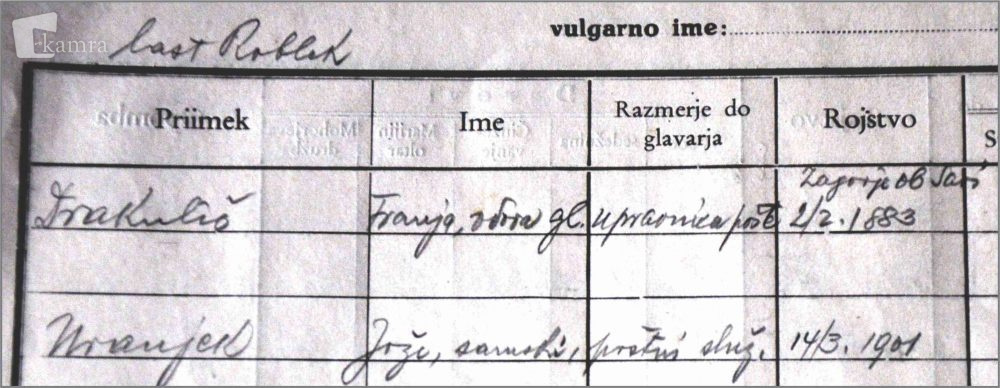 kamra
last Roblek
vulgarno ime:
Priimek Ime Razmerje do glavarja Rojstvo S
Zagorje ob Savi
Drakulić Franja, vdova gl. upravnica pošte 2/2. 1883
Jože, samski, poštni služ. 14/3. 1901